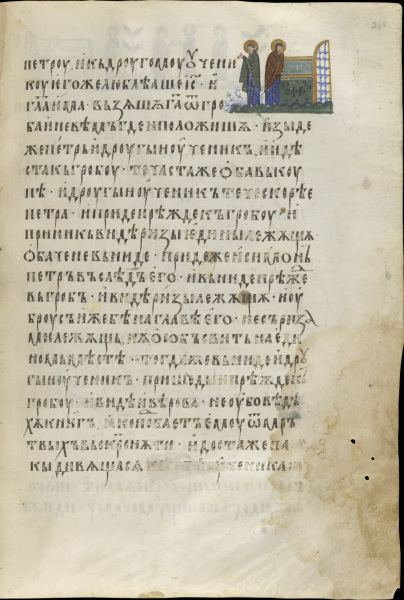 петроу и къ дроугомоу оучени
коу его же люблѣаше іс҃ · и
гл҃а има · възяшѧ га҃ ѿ гро
ба и не вѣмъ где и положишѧ · изыде
же петръ и дроугыи оученикъ и идѣ
ста къ гробоу · течаста же ѡба въкоу
пѣ · и дроугыи оученикъ тече скорѣе
петра · и прииде прѣжде къ гробоу · и
приникъ видѣ ризы едины лежѧщѧ
ѡбаче не въниде · прииде же и симонь
петръ въ слѣдъ его · и въниде прѣже
въ гробъ · и видѣ ризы лежѧщѧ · и оу
броусъ иже бѣ на главѣ его · не съ риза
ми лежѧщь нѫ особъ свитъ на еди
номь мѣстѣ · тогда же въниде и дроу
гыи оученикъ · пришеды прѣжде къ
гробоу · и видѣ и вѣрова · не оубо вѣдѣ
хѫ книгъ ꙗко подбаетъ емоу ѿ мръ
твыхъ въскрⷭснѫти · идоста же па
кы дивящася оученика